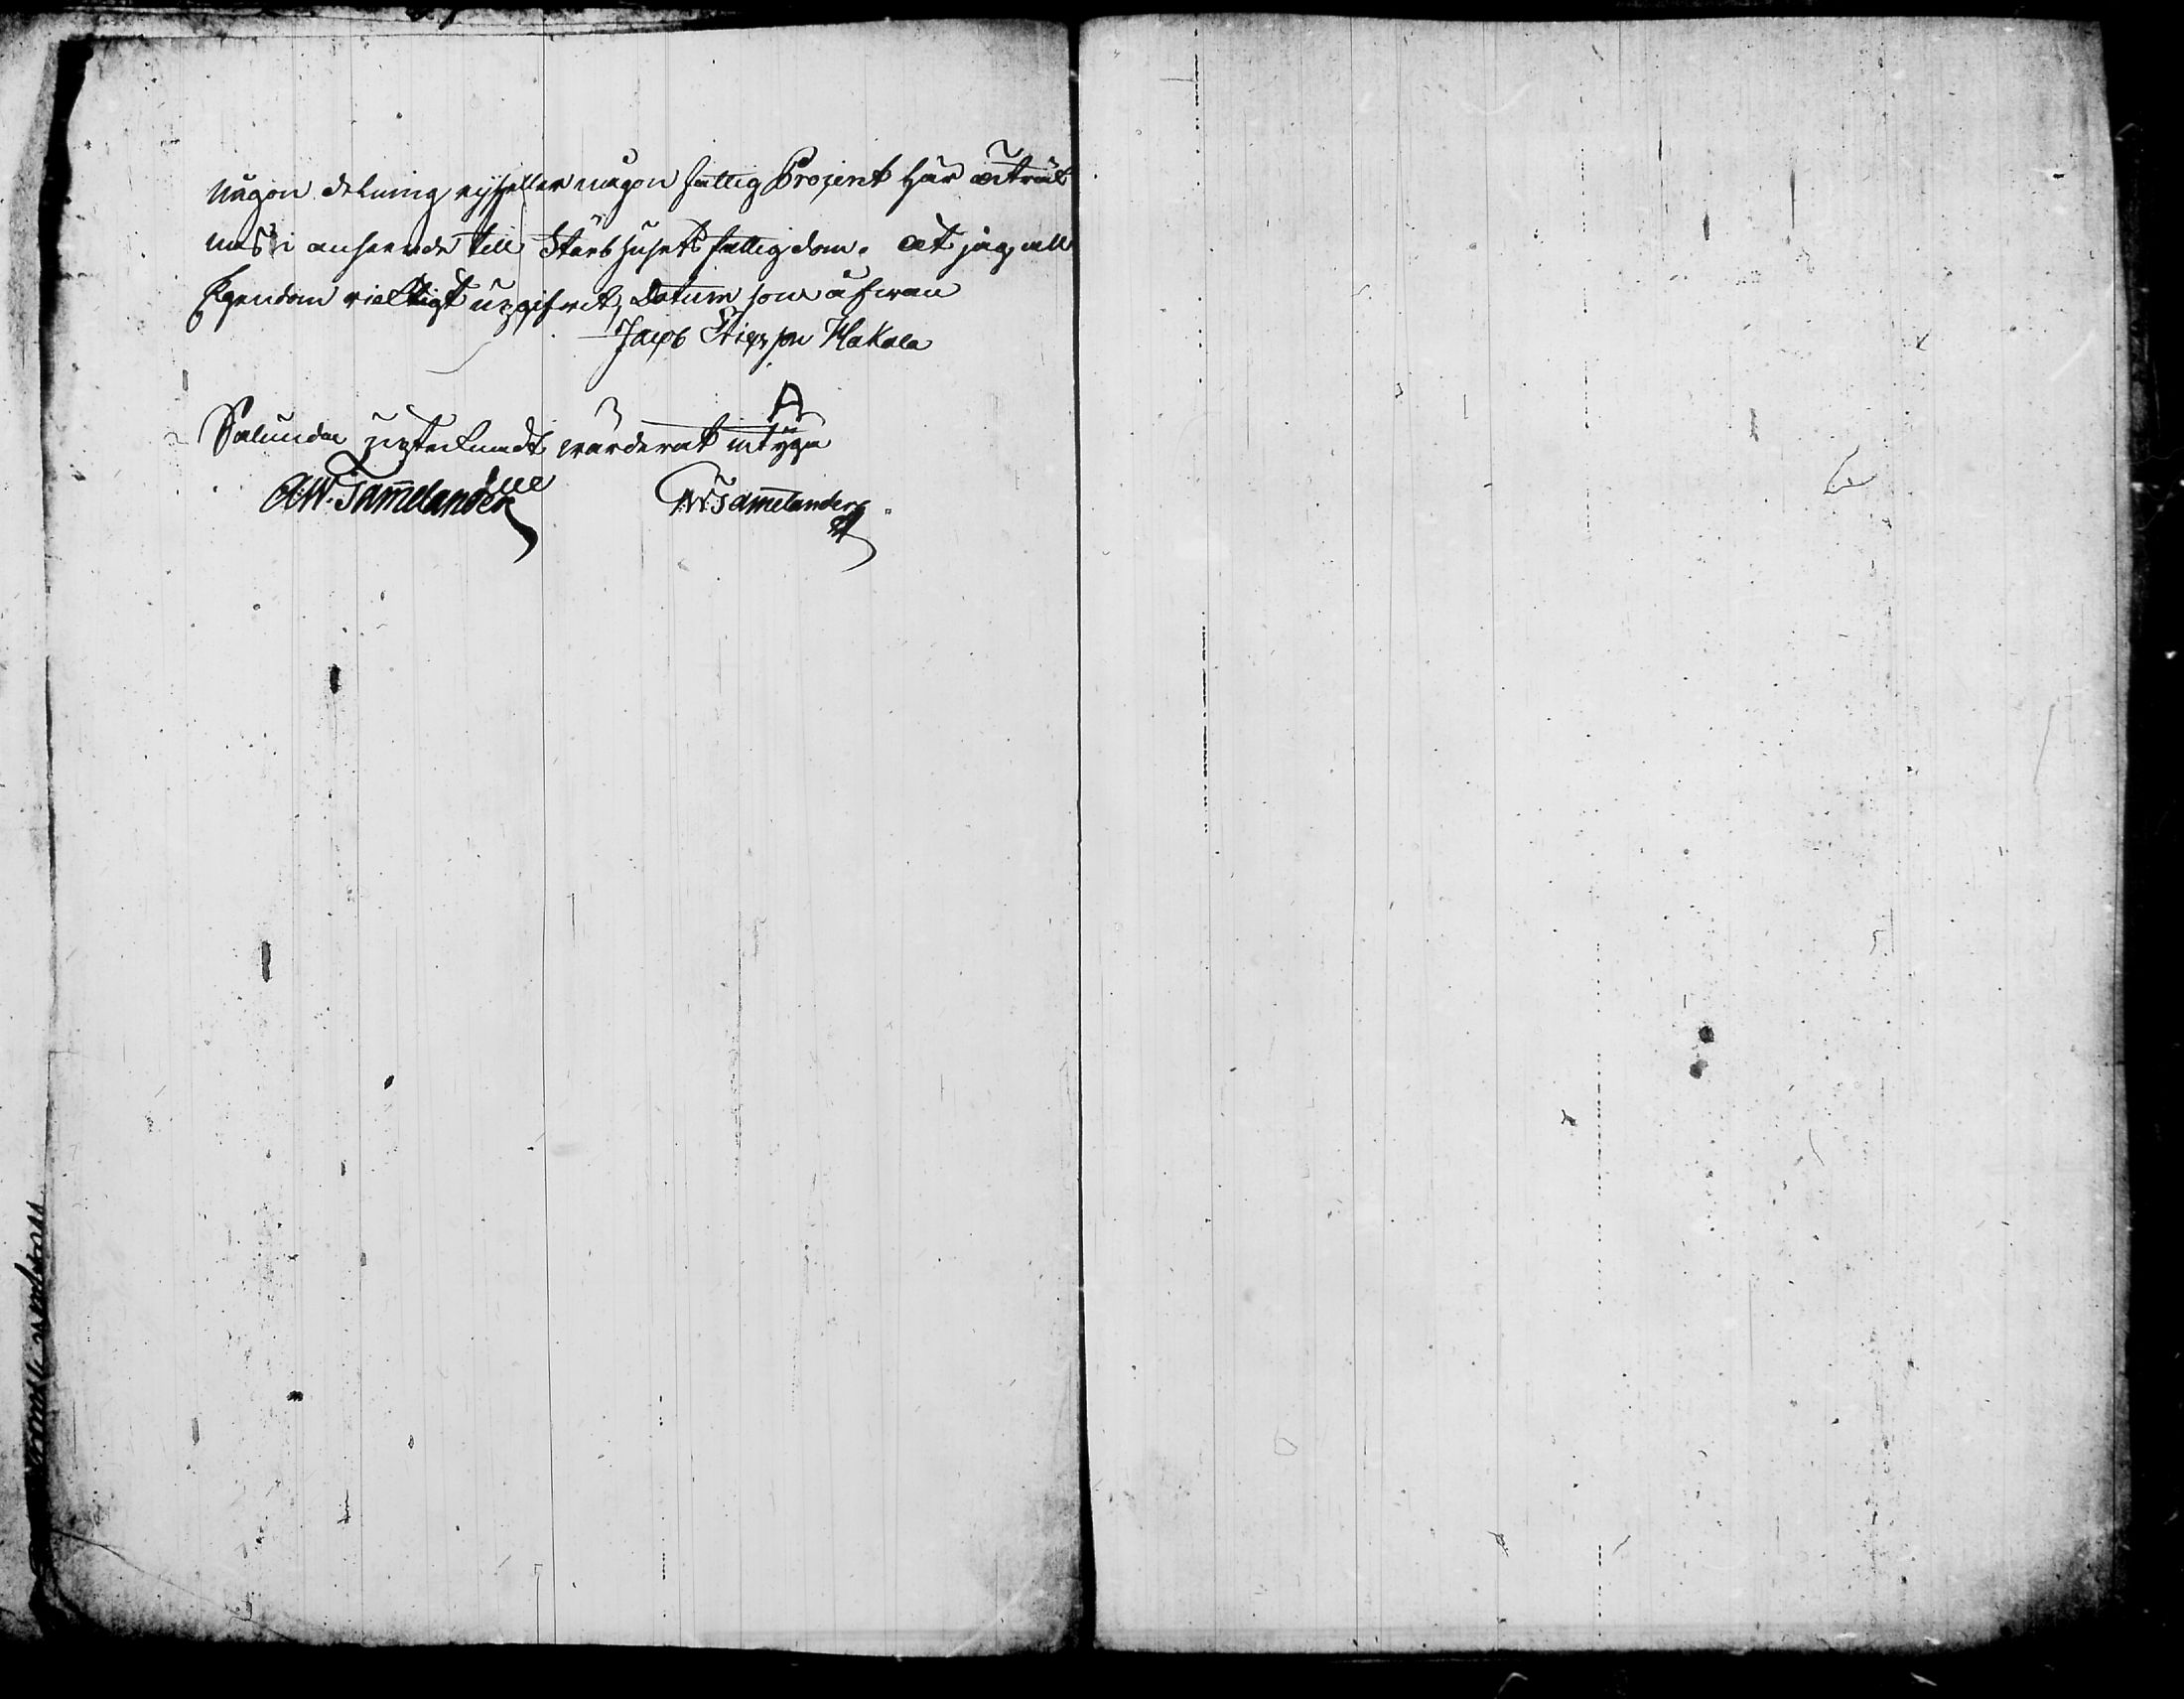 någon delning ej heller någon fattig Prosent här
nas i anseende till Stärbhusets fattigdom. at jag all
Egendom ricktigt upgifvit, Datum som åfwan
Jacob Stigsson Hakala
Salunda upteknadt värderat intyga
A:W. Tamelander A:W. Tamelander